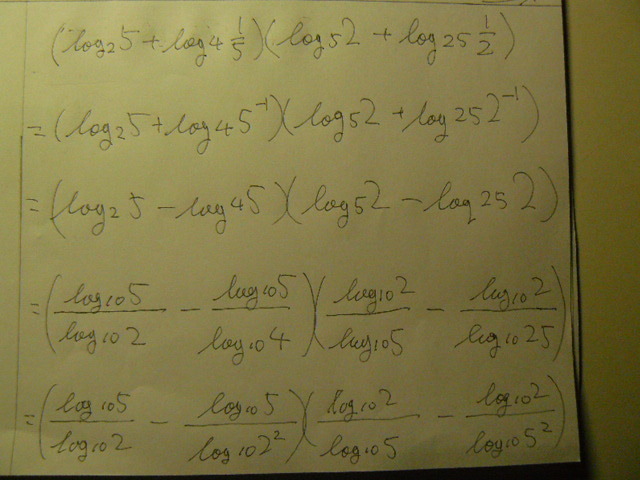 (log₂5 + log₄ 1/5)(log₅2 + log₂₅ 1/2)
= (log₂5 + log₄5⁻¹)(log₅2 + log₂₅2⁻¹)
= (log₂5 − log₄5)(log₅2 − log₂₅2)
= (log₁₀5/log₁₀2 − log₁₀5/log₁₀4)(log₁₀2/log₁₀5 − log₁₀2/log₁₀25)
= (log₁₀5/log₁₀2 − log₁₀5/log₁₀2²)(log₁₀2/log₁₀5 − log₁₀2/log₁₀5²)